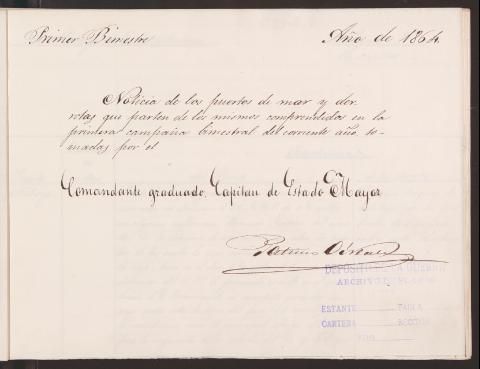 Primer Bimestre
Año de 1864.
Noticia de los puertos de mar y der
rotas que parten de los mismos comprendidos en la
primera campaña bimestral del corriente año, to-
madas por el
Comandante graduado, Capitan de Estado Mayor
DEPOSITO DE LA GUERRA
ARCHIVO DE PLANOS
ESTANTE TABLA
CARTERA SECCION